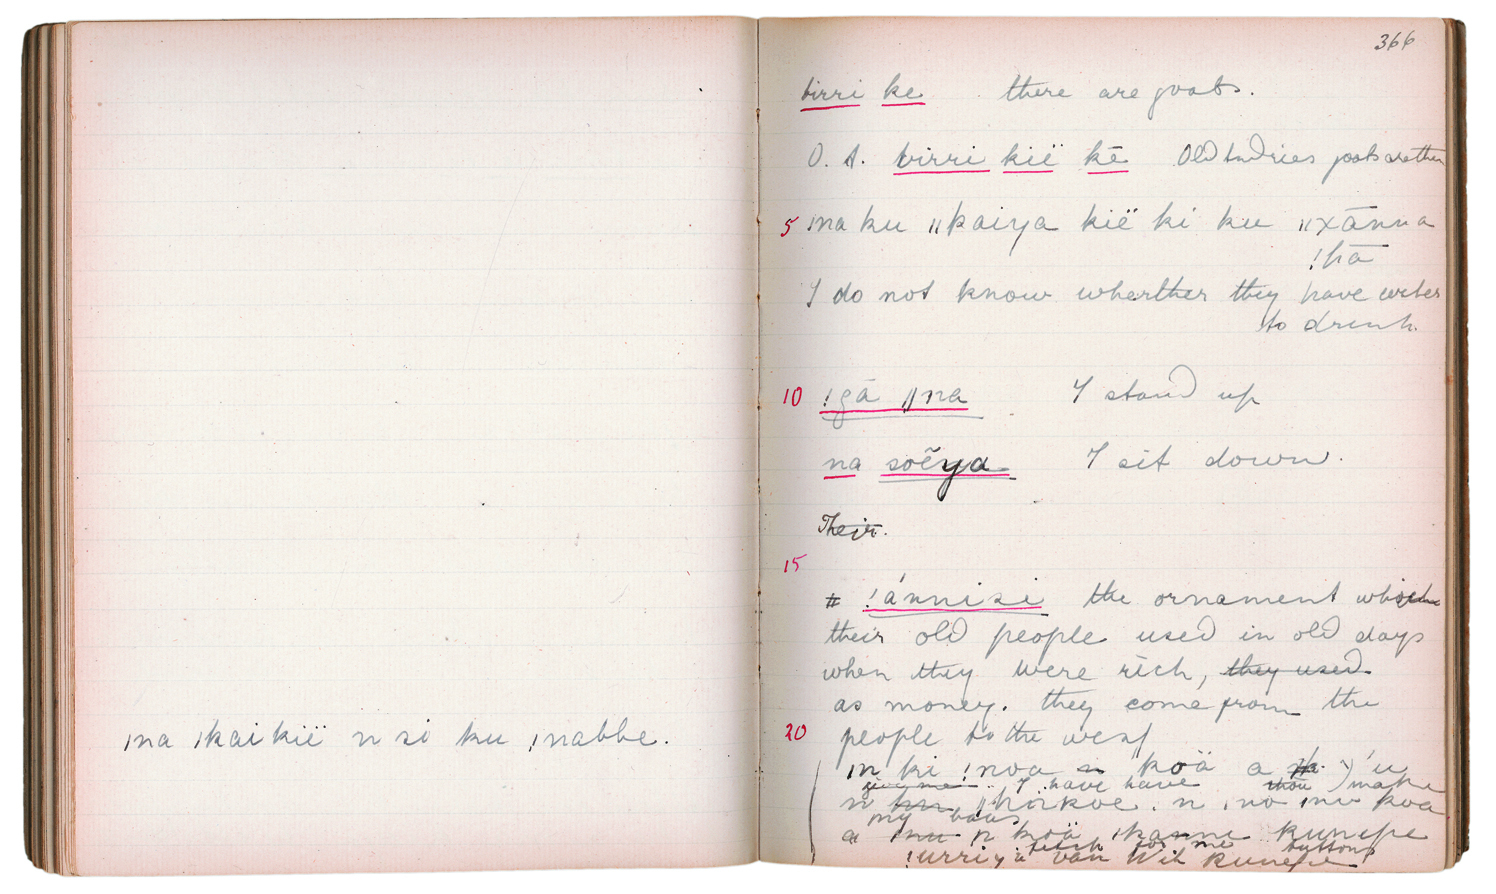 ına ıkai kië n si ku ınabbe.
366
birri ke there are goats.
O. A. birri kië kē Old goats are
5 ına ku ǁkaiya kië ki ku ǁxānna
!hā
I do not know wherther they have water
to drink.
10 !gā ǁna I stand up
na soẽya I sit down.
Their.
15
!ánnisi the ornament which
their old people used in old days
when they were rich, they used
as money. they come from the
20 people to the west
ın ki !noa koä a !'u
give me. I have have thou make
n n ıno ınu koa
my
a ınu n koä ıkanne
fetch for me buttons
!urriya van Wik